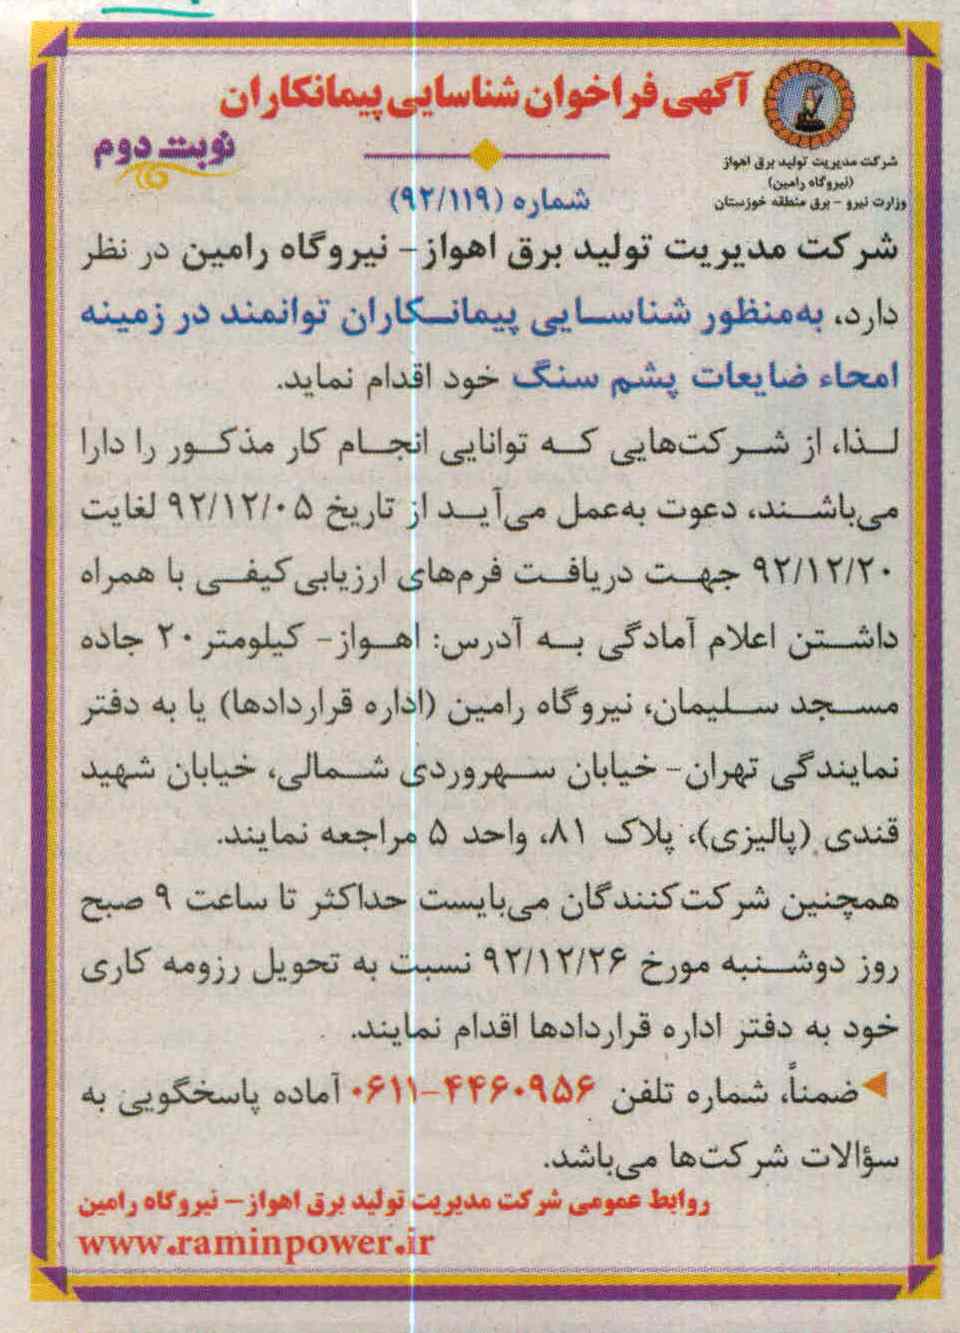 آگهی فراخوان شناسایی پیمانکاران
نوبت دوم
شرکت مدیریت تولید برق اهواز
(نیروگاه رامین)
وزارت نیرو - برق منطقه خوزستان
شماره (۹۲/۱۱۹)
شرکت مدیریت تولید برق اهواز- نیروگاه رامین در نظر
دارد، به‌منظور شناسایی پیمانکاران توانمند در زمینه
امحاء ضایعات پشم سنگ خود اقدام نماید.
لذا، از شرکت‌هایی که توانایی انجام کار مذکور را دارا
می‌باشند، دعوت به‌عمل می‌آید از تاریخ ۹۲/۱۲/۰۵ لغایت
۹۲/۱۲/۲۰ جهت دریافت فرم‌های ارزیابی کیفی با همراه
داشتن اعلام آمادگی به آدرس: اهواز- کیلومتر ۲۰ جاده
مسجد سلیمان، نیروگاه رامین (اداره قراردادها) یا به دفتر
نمایندگی تهران- خیابان سهروردی شمالی، خیابان شهید
قندی (پالیزی)، پلاک ۸۱، واحد ۵ مراجعه نمایند.
همچنین شرکت‌کنندگان می‌بایست حداکثر تا ساعت ۹ صبح
روز دوشنبه مورخ ۹۲/۱۲/۲۶ نسبت به تحویل رزومه کاری
خود به دفتر اداره قراردادها اقدام نمایند.
ضمناً، شماره تلفن ۴۴۶۰۹۵۶-۰۶۱۱ آماده پاسخگویی به
سؤالات شرکت‌ها می‌باشد.
روابط عمومی شرکت مدیریت تولید برق اهواز- نیروگاه رامین
www.raminpower.ir